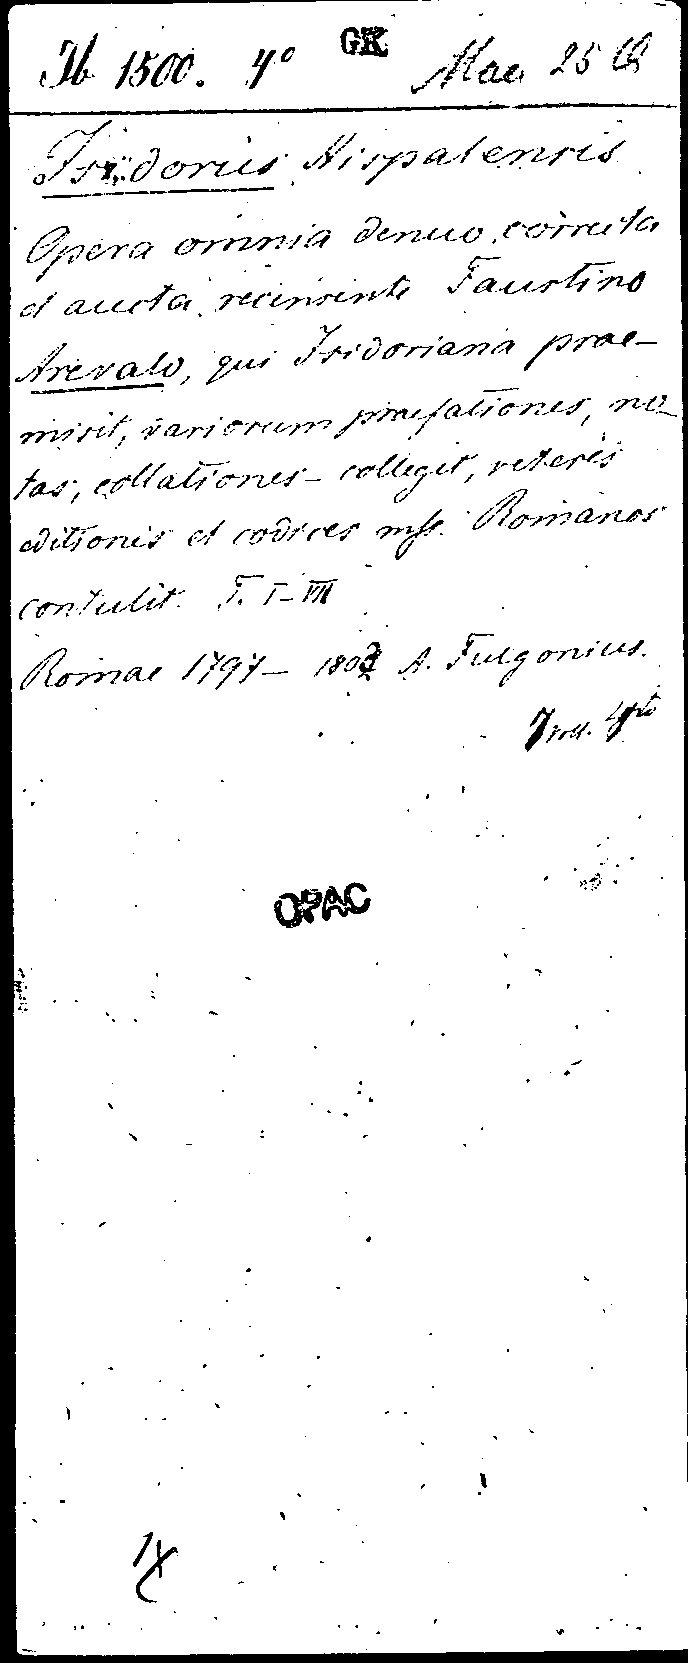 Jb 1500. 4° GK
Isidorus Hispalensis
Opera omnia denuo correcta
et aucta recensente Faustino
Arevalo, qui Isidoriana prae-
misit, variorum praefationes, no-
tas, collationes collegit, veteres
editiones et codices mss. Romanos
contulit. T. I-VII
Romae 1797- 1803 A. Fulgonius.
7 voll. 4to
OPAC